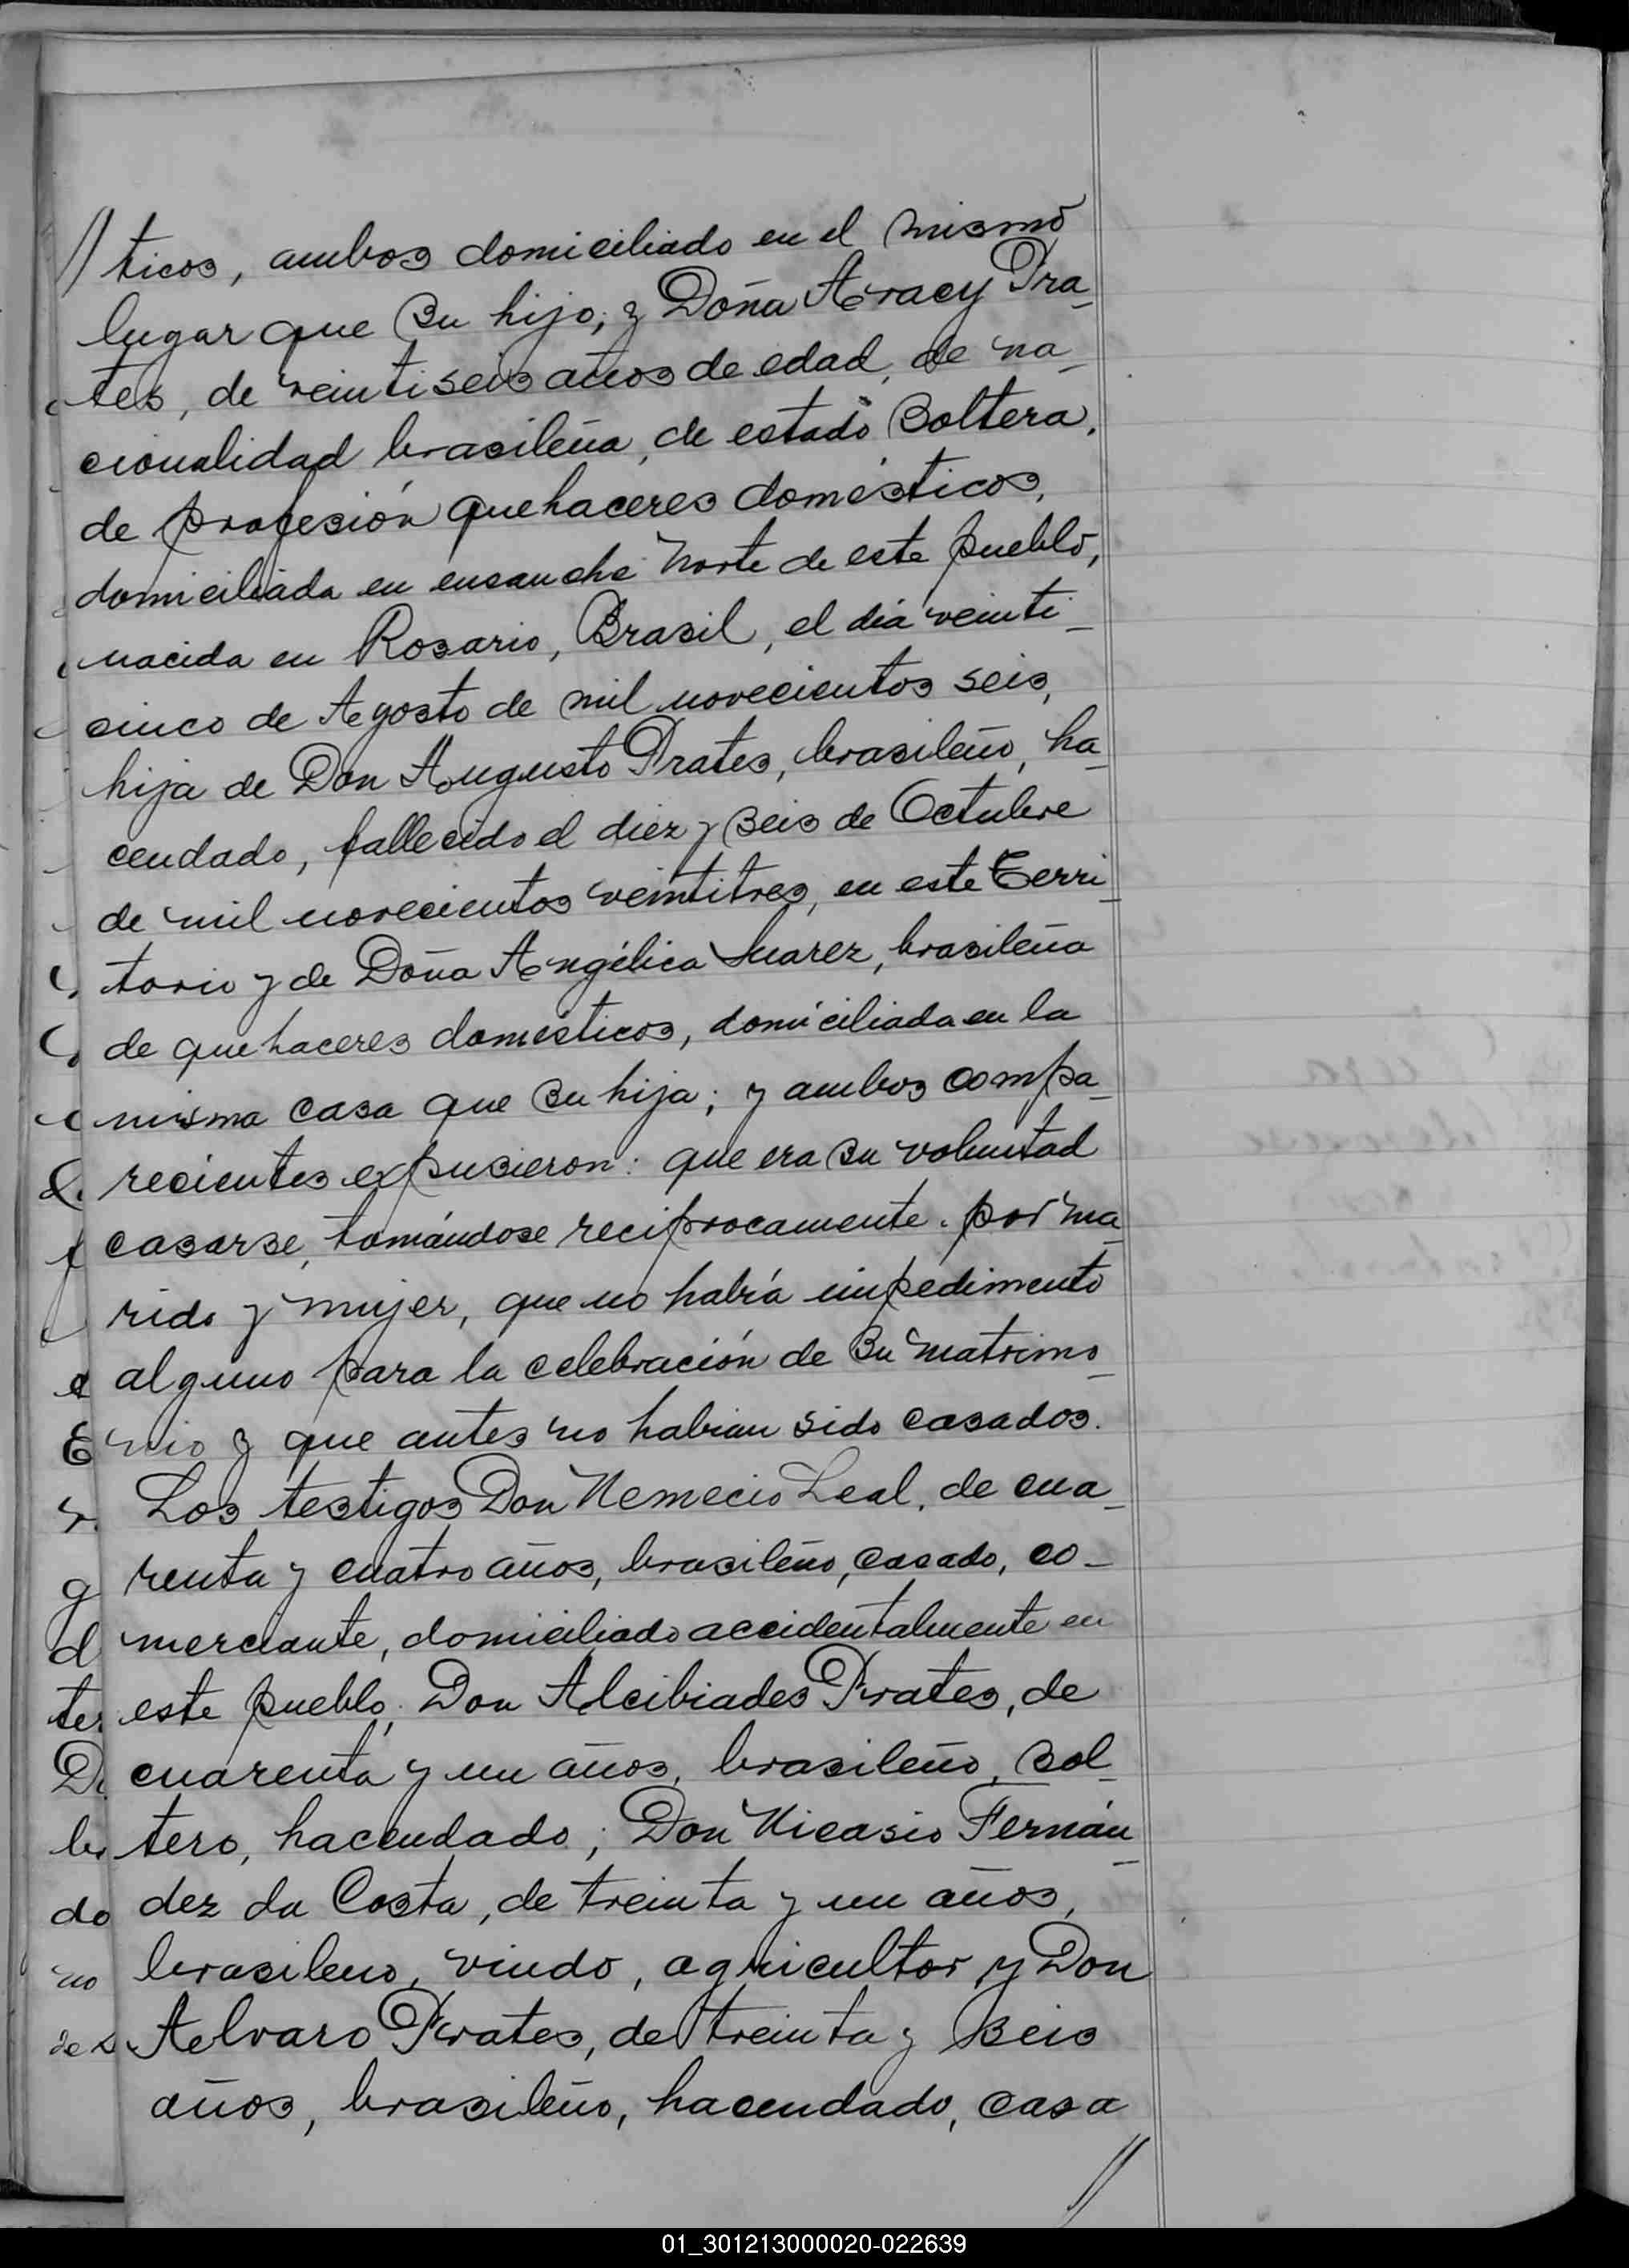 // ticos, ambos domiciliado en el mismo
lugar que su hijo; y Doña Aracy Pra_
tes, de veintiseis años de edad, de na_
cionalidad brasileña, de estado soltera,
de profesión quehaceres domésticos,
domiciliada en ensanche Norte de este pueblo,
nacida en Rosario, Brasil, el día veinti_
cinco de Agosto de mil novecientos seis,
hija de Don Augusto Prates, brasileño, ha_
cendado, fallecido el diez y seis de Octubre
de mil novecientos veintitres, en este Terri_
torio y de Doña Angélica Suarez, brasileña
de quehaceres domésticos, domiciliada en la
misma casa que su hija; y ambos compa_
recientes expusieron: que era su voluntad
casarse, tomándose reciprocamente por ma_
rido y mujer, que no había impedimento
alguno para la celebración de su matrimo_
nio y que antes no habian sido casados.
Los testigos Don Nemecio Leal, de cua_
renta y cuatro años, brasileño, casado, co_
merciante, domiciliado accidentalmente en
este pueblo; Don Alcibiades Prates, de
cuarenta y un años, brasileño, sol_
tero, hacendado; Don Nicasio Fernán_
dez da Costa, de treinta y un años,
brasileno, viudo, agricultor y Don
Alvaro Prates, de treinta y seis
años, brasileño, hacendado, casa
//
01_301213000020-022639